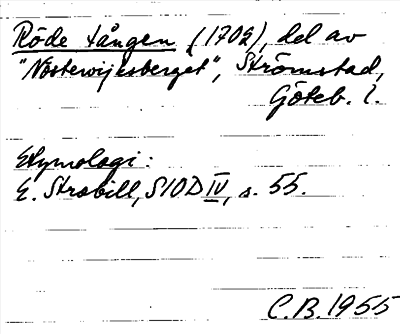 Röde tången (1702), del av
"Västerwijksberget", Strömstad,
Göteb. l.
Etymologi:
E. Strabill, SIOD IV, s. 55.
C.B. 1955